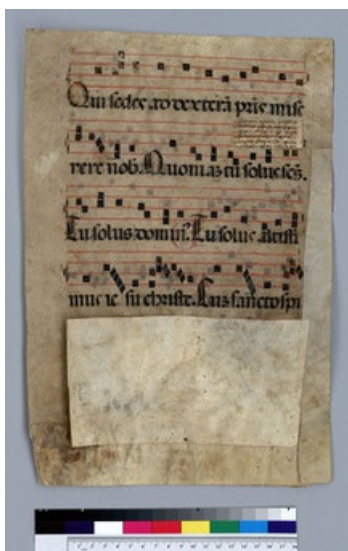 Qui sedes ad dexterā pr̄is mise
rere nob. Quoniaȝ tu solus scs̄.
Tu solus domin⁹. Tu solus altissi
mus ie su christe. Cuȝ sancto spi